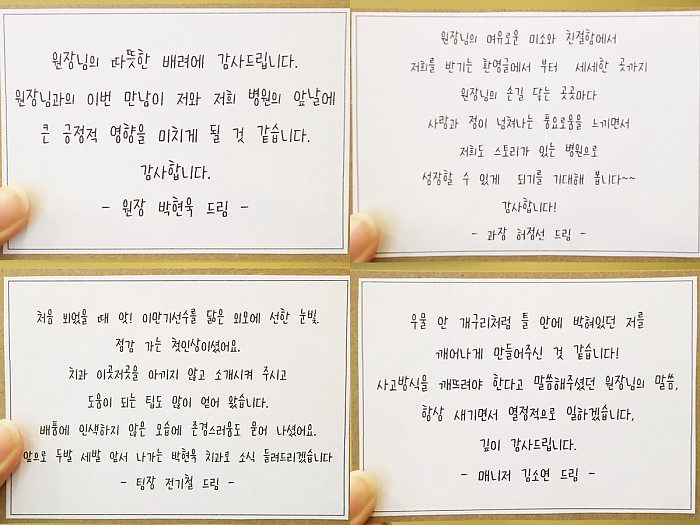 원장님의 따뜻한 배려에 감사드립니다.
원장님과의 이번 만남이 저와 저희 병원의 앞날에
큰 긍정적 영향을 미치게 될 것 같습니다.
감사합니다.
- 원장 박현욱 드림 -
원장님의 여유로운 미소와 친절함에서
저희를 반기는 환영글에서 부터 세세한 곳까지
원장님의 손길 닿는 곳곳마다
사랑과 정이 넘쳐나는 풍요로움을 느끼면서
저희도 스토리가 있는 병원으로
성장할 수 있게 되기를 기대해 봅니다~~
감사합니다!
- 과장 허정선 드림 -
처음 뵈었을 때 앗! 이만기선수를 닮은 외모에 선한 눈빛.
정감 가는 첫인상이셨어요.
치과 이곳저곳을 아끼지 않고 소개시켜 주시고
도움이 되는 팁도 많이 얻어 왔습니다.
배품에 인색하지 않은 모습에 존경스러움도 묻어 나셨어요.
앞으로 두발 세발 앞서 나가는 박현욱 치과로 소식 들려드리겠습니다
- 팀장 전기철 드림 -
우물 안 개구리처럼 틀 안에 박혀있던 저를
깨어나게 만들어주신 것 같습니다!
사고방식을 깨뜨려야 한다고 말씀해주셨던 원장님의 말씀,
항상 새기면서 열정적으로 일하겠습니다.
깊이 감사드립니다.
- 매니저 김소연 드림 -